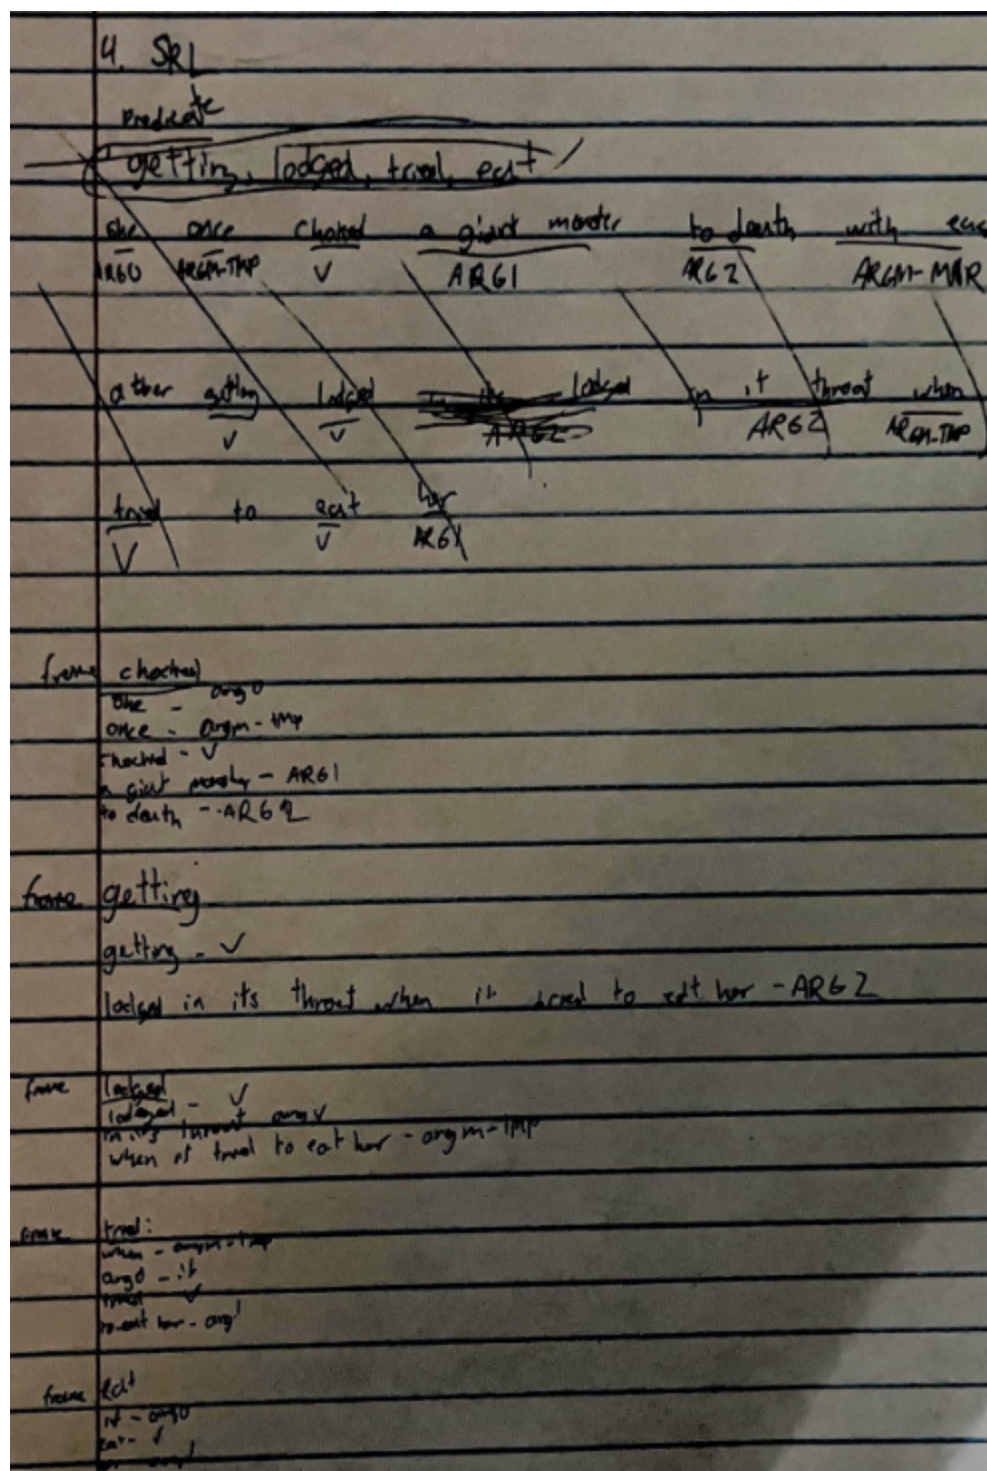 4. SRL
Predicate
getting, lodged, tried, eat
she once choked a giant monster to death with
ARG0 ARGM-TMP V ARG1 ARG2 ARGM-MNR
after getting lodged lodged in it throat when
V V ARG2 ARG2 ARGM-TMP
tried to eat her
V V ARG1
frame chocked
She - arg0
once - argm-tmp
chocked - V
a giant monster - ARG1
to death - ARG2
frame getting
getting - V
lodged in its throat when it tried to eat her - ARG2
frame lodged
lodged - V
in its throat
when it tried to eat her - argm-TMP
frame tried:
when - argm-tmp
arg0 - it
tried V
to eat her - arg1
frame eat
it - arg0
eat - V